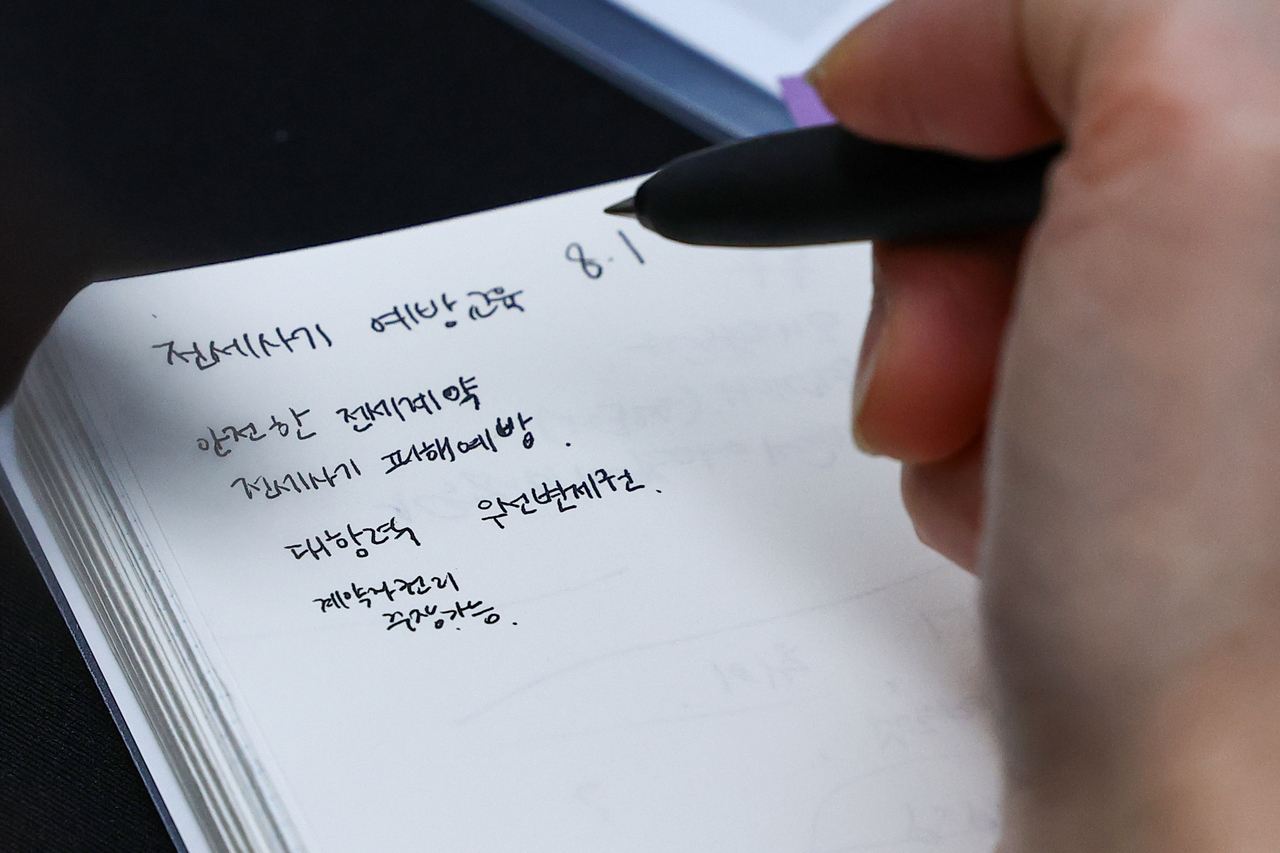 8.1
전세사기 예방교육
안전한 전세계약
전세사기 피해예방.
대항력 우선변제권.
계약자권리
주장가능.